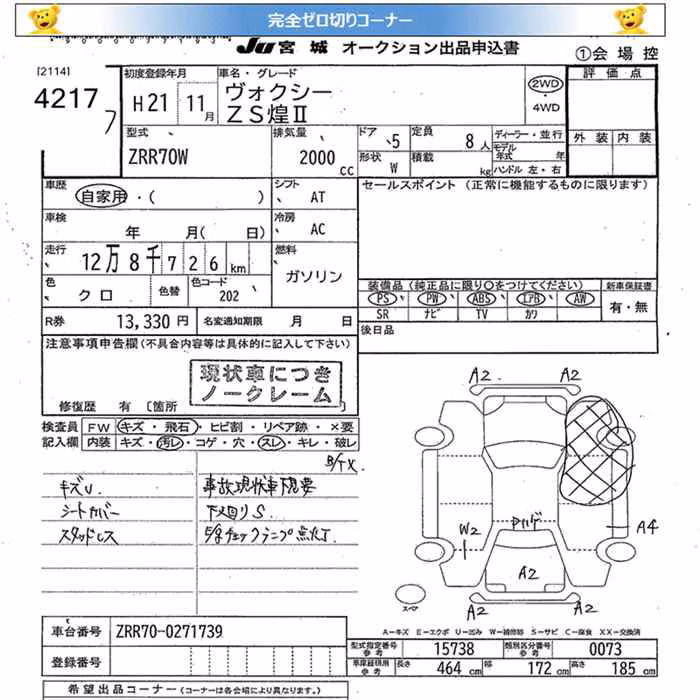 完全ゼロ切りコーナー
JU 宮城 オークション出品申込書
①会場控
[2114]
4217
初度登録年月
H21 11月
車名・グレード
ヴォクシー
ZS煌Ⅱ
2WD
・
4WD
評価点
外装 内装
型式
ZRR70W
排気量
2000 cc
ドア 5
定員 8人
形状 W
積載 kg
ディーラー・並行
モデル年式 年
ハンドル 左・右
車歴
自家用・( )
シフト
AT
セールスポイント (正常に機能するものに限ります)
車検
年 月( 日)
冷房
AC
走行
12万8千726km
燃料
ガソリン
色
クロ
色替
色コード
202
装備品 (純正品に限り○をつけてください)
新車保証書
PS PW ABS エアB AW
SR ナビ TV カワ
有・無
R券 13,330円
名変通知期限 月 日
後日品
注意事項申告欄(不具合内容等は具体的に記入して下さい)
現状車につき
ノークレーム
修復歴 有 [箇所
検査員 FW キズ・飛石・ヒビ割・リペア跡・×要
記入欄 内装 キズ・汚レ・コゲ・穴・スレ・キレ・破レ
キズU
事故現状車下見要
シートカバー
下廻りS
スタッドレス
A2 A2
A4
W2
A2
A2 A2
スペア
A―キズ E―エクボ U―凹み W―補修跡 S―サビ C―腐食 XX―交換済
車台番号 ZRR70-0271739
型式指定番号 参考 15738
類別区分番号 参考 0073
登録番号
車庫証明用 参考 長さ 464 cm 幅 172 cm 高さ 185 cm
希望出品コーナー (コーナーは各会場により異なります。)